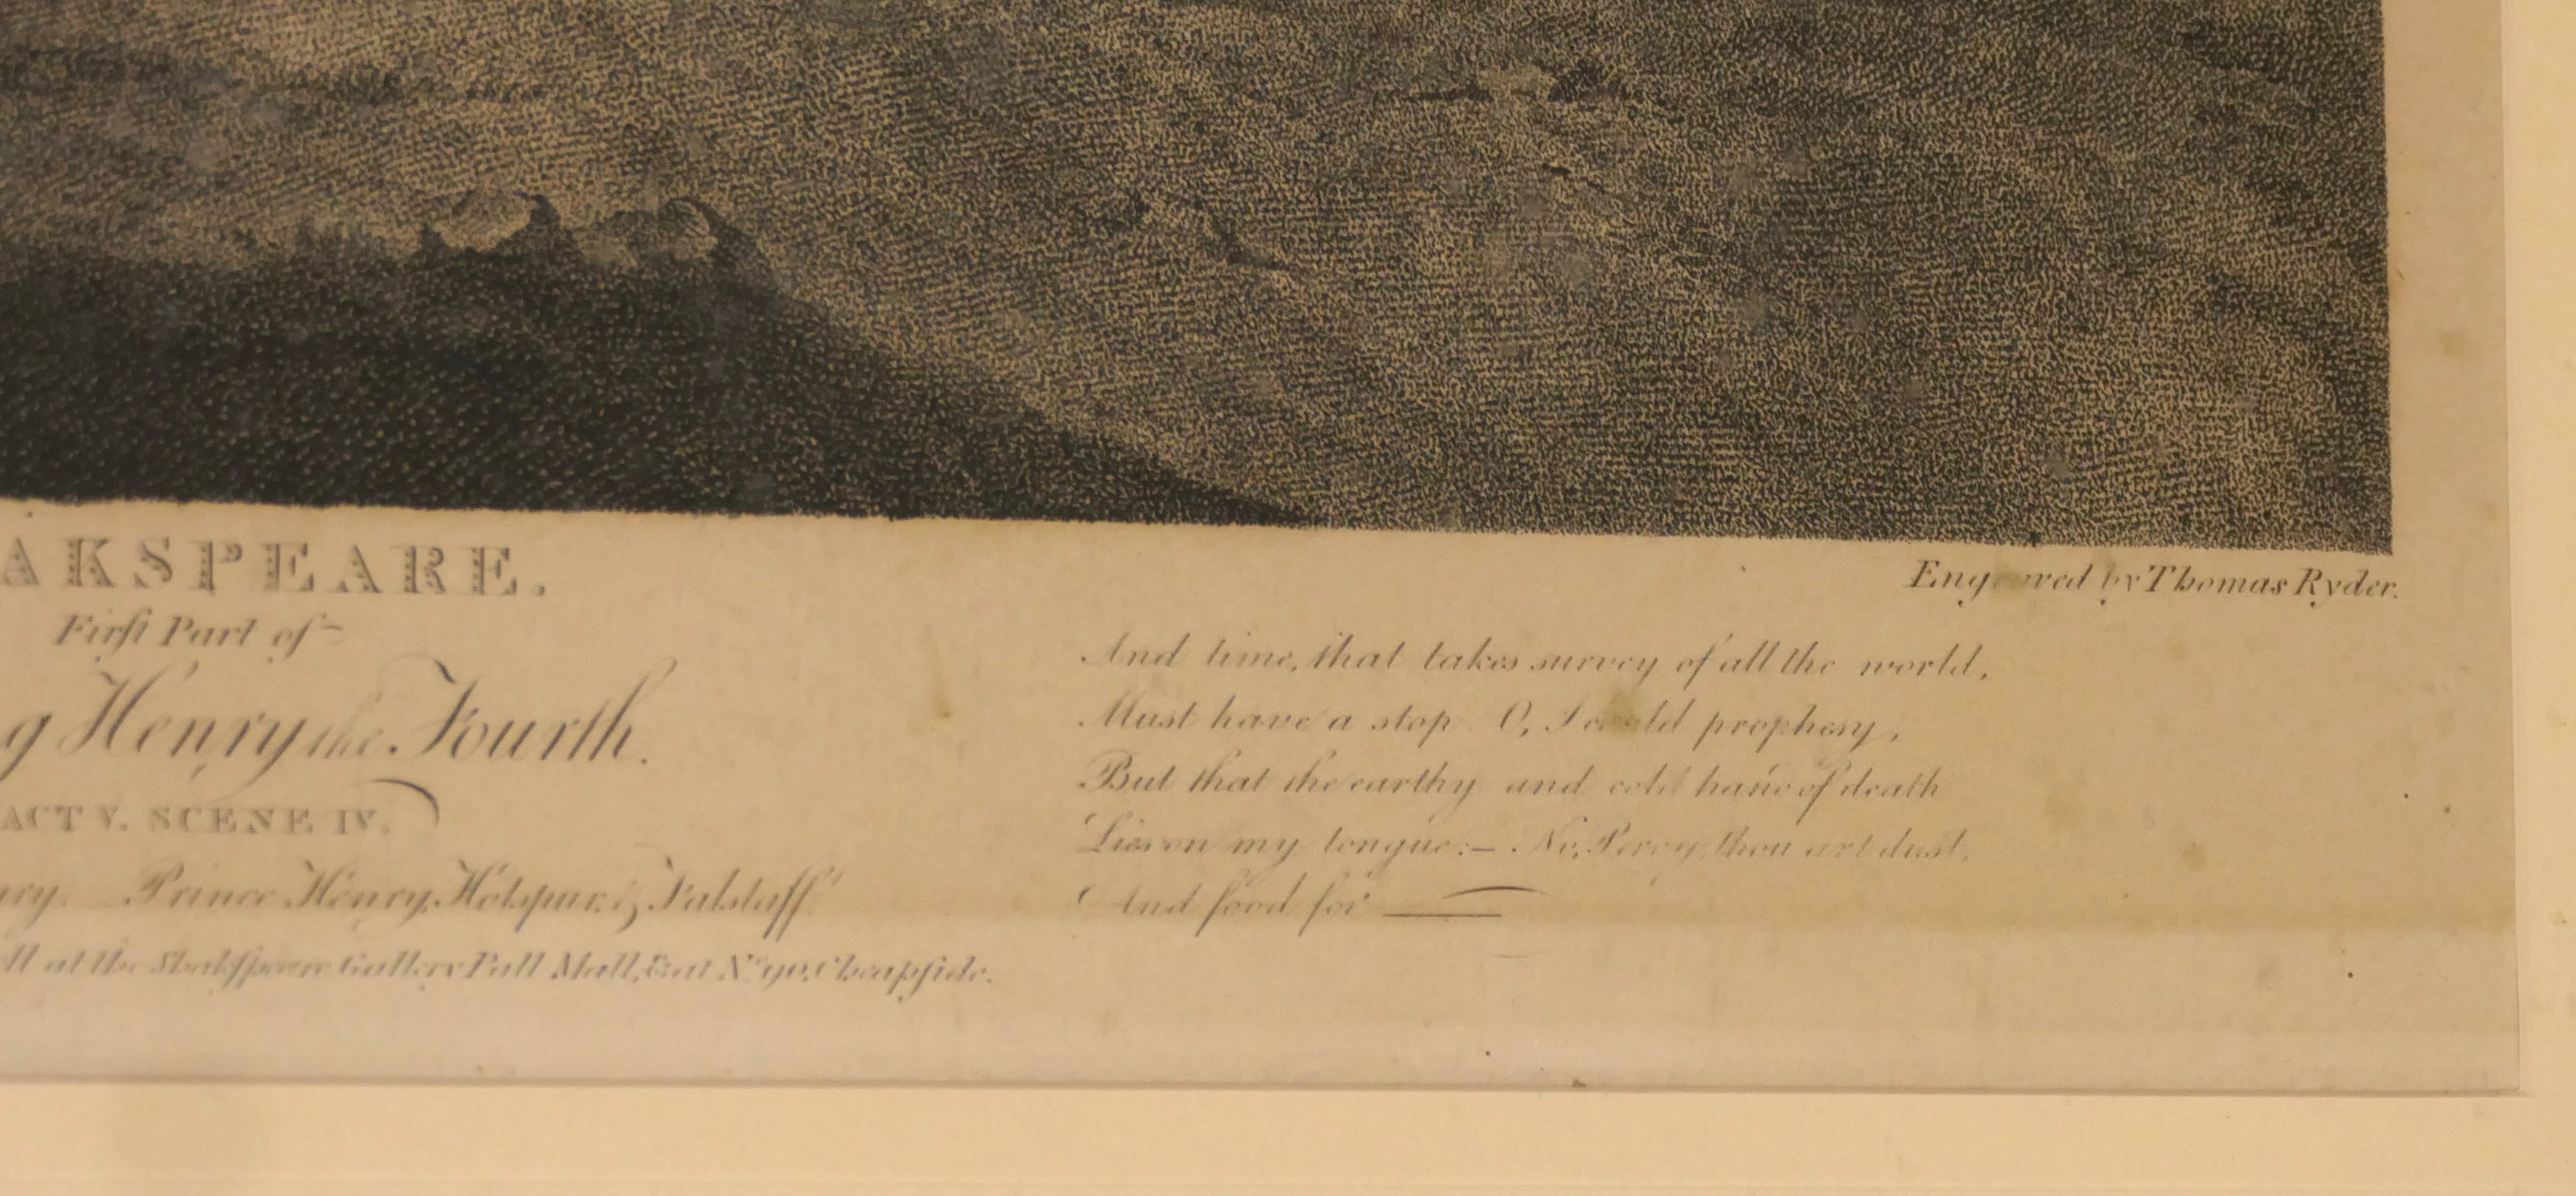 AKSPEARE.
Engraved by Thomas Ryder.
Firſt Part of
g Henry the Fourth.
ACT V. SCENE IV.
ry. Prince Henry, Hotspur, & Falstaff.
ll at the Shakſpeare Gallery Pall Mall, & at No. 90, Cheapſide.
And time, that takes survey of all the world,
Must have a stop. O, I could prophesy,
But that the earthy and cold hand of death
Lies on my tongue:— No, Percy, thou art dust,
And food for —